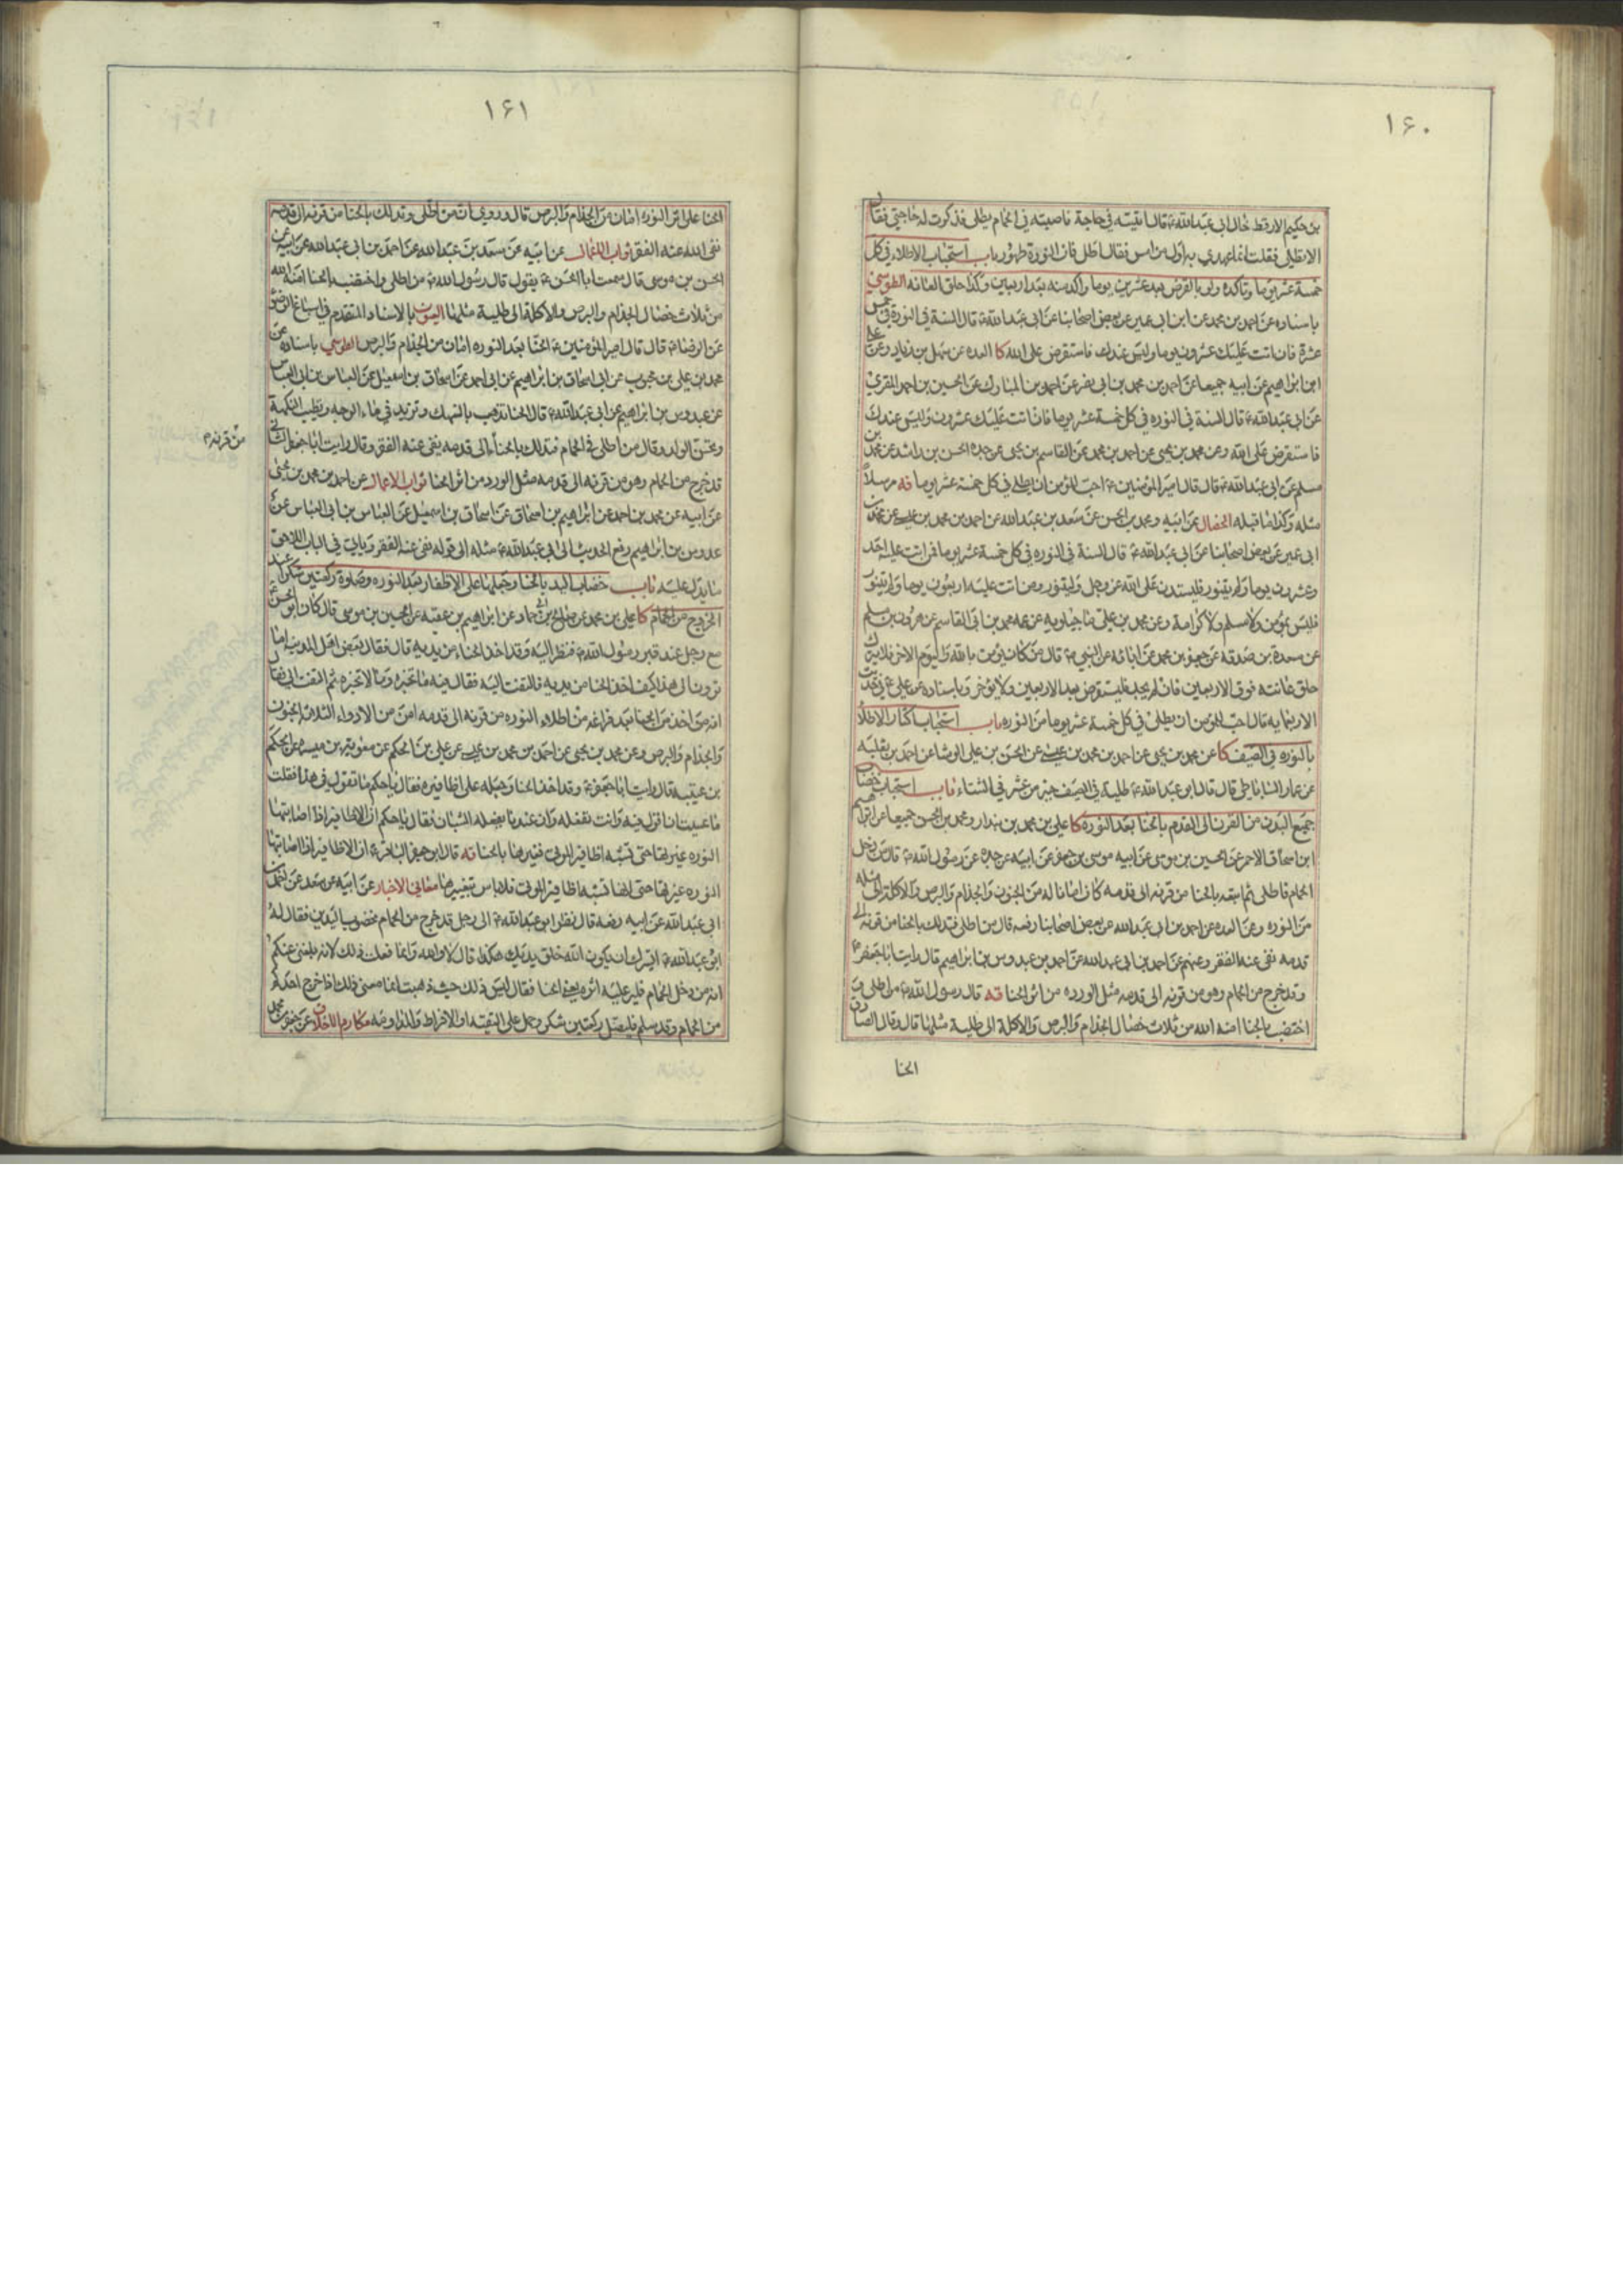 ۱۶۰
بن حكيم الارقط خال ابى عبد الله ع قال اتيته فى حاجة فاصبته فى الحمام يطلى فذكرت له حاجتى فقال
الا تطلى فقلت انما عهدى به اول من امس فقال اطل فان النورة طهور باب استحباب الاطلاء فى كل
خمسة عشر يوما وتاكده ولو بالقرض بعد عشرين يوما واكد منه بعد اربعين وكذا حلق العانة الطوسي
باسناده عن احمد بن محمد عن ابن ابى عمير عن بعض اصحابنا عن ابى عبد الله ع قال السنة فى النورة فى خمس
عشرة فان اتت عليك عشرون يوما وليس عندك فاستقرض على الله كا العده عن سهل بن زياد وعن على
ابن ابراهيم عن ابيه جميعا عن احمد بن محمد بن ابى نصر عن احمد بن المبارك عن الحسين بن احمد المنقرى
عن ابى عبد الله ع قال السنة فى النوره فى كل خمسة عشر يوما فان اتت عليك عشرون وليس عندك
فاستقرض على الله وعن محمد بن يحيى عن احمد بن محمد عن القاسم بن يحيى عن جده الحسن بن راشد عن محمد بن
مسلم عن ابى عبد الله ع قال قال امير المؤمنين ع احب للمؤمن ان يطلى فى كل خمسة عشر يوما قه مرسلا
مثله وكذا ما قبله الخصال عن ابيه ومحمد بن الحسن عن سعد بن عبد الله عن احمد بن محمد بن عيسى عن محمد بن
ابى عمير عن بعض اصحابنا عن ابى عبد الله ع قال السنة فى النوره فى كل خمسة عشر يوما فمن اتت عليه احد
وعشرون يوما ولم يتنور فليستدن على الله عز وجل وليتنور ومن اتت عليه اربعون يوما ولم يتنور
فليس بمؤمن ولا مسلم ولا كرامة وعن محمد بن على ماجيلويه عن عمه محمد بن ابى القاسم عن هرون بن مسلم
عن مسعدة بن صدقه عن جعفر بن محمد عن ابائه عن النبى ص قال من كان يؤمن بالله واليوم الاخر فلا يترك
حلق عانته فوق الاربعين فان لم يجد فليستقرض بعد الاربعين ولا يؤخر وباسناده عن على ع فى حديث
الاربعمايه قال احب للمؤمن ان يطلى فى كل خمسة عشر يوما من النوره باب استحباب اكثار الاطلاء
بالنوره فى الصيف كا عن محمد بن يحيى عن احمد بن محمد بن عيسى عن الحسن بن على الوشا عن احمد بن ثعلبه
عن عمار الساباطى قال قال ابو عبد الله ع طلية فى الصيف خير من عشر فى الشتاء باب استحباب خضاب
جميع البدن من القرن الى القدم بالحنا بعد النوره كا على بن محمد بن بندار ومحمد بن الحسن جميعا عن ابراهيم
ابن اسحاق الاحمر عن الحسين بن موسى عن ابيه موسى بن جعفر عن ابيه عن جده عن رسول الله ص قال من دخل
الحمام فاطلى ثم اتبعه بالحنا من قرنه الى قدمه كان امانا له من الجنون والجذام والبرص والاكلة الى مثله
من النوره وعن العده عن احمد بن ابى عبد الله عن بعض اصحابنا رفعه قال من اطلى فتدلك بالحنا من قرنه الى
قدمه نفى عنه الفقر وعنهم عن احمد بن ابى عبد الله عن احمد بن عبدوس بن ابراهيم قال رايت ابا جعفر ع
وقد خرج من الحمام وهو من قرنه الى قدمه مثل الورده من اثر الحنا قه قال رسول الله ص من اطلى و
اختضب بالحنا امنه الله من ثلاث خصال الجذام والبرص والاكلة الى طلية مثلها قال وقال الصادق
الحنا
۱۶۱
الحنا على اثر النوره امان من الجذام والبرص قال وروى ان من اطلى وتدلك بالحنا من قرنه الى قدمه
نفى الله عنه الفقر ثواب الاعمال عن ابيه عن سعد بن عبد الله عن احمد بن ابى عبد الله عن ابيه عن
الحسن بن موسى قال سمعت ابا الحسن ع يقول قال رسول الله ص من اطلى واختضب بالحنا امنه الله
من ثلاث خصال الجذام والبرص والاكلة الى طلية مثلها العيون بالاسناد المتقدم فى اسباغ الوضوء
عن الرضا ع قال قال امير المؤمنين ع الحنا بعد النوره امان من الجذام والبرص الطوسي باسناده عن
محمد بن على بن محبوب عن ابى اسحاق بن ابراهيم عن ابى احمد عن اسحاق بن اسمعيل عن العباس بن ابى العباس
عن عبدوس بن ابراهيم عن ابى عبد الله ع قال الحنا تذهب بالسهك وتزيد فى ماء الوجه وتطيب النكهة
وتحسن الولد وقال من اطلى فى الحمام فتدلك بالحناء الى قدمه ينفى عنه الفقر وقال رايت ابا جعفر الثانى
من قرنه م
قد خرج من الحمام وهو من قرنه الى قدمه مثل الورد من اثر الحنا ثواب الاعمال عن احمد بن محمد بن يحيى
عن ابيه عن محمد بن احمد عن ابراهيم بن اسحاق عن اسحاق بن اسمعيل عن العباس بن ابى العباس عن
عبدوس بن ابراهيم رفع الحديث الى ابى عبد الله ع مثله الى قوله نفى عنه الفقر وياتى فى الباب اللاحق
ما يدل عليه باب خضاب اليد بالحنا وجعلها على الاظفار بعد النوره وصلوة ركعتين شكرا عند
الخروج من الحمام كا على بن محمد عن صالح بن ابى حماد عن ابراهيم بن عقبه عن الحسين بن موسى قال كان ابو الحسن ع
مع رجل عند قبر رسول الله ص فنظر اليه وقد اخذ الحناء من يديه قال فقال بعض اهل المدينه اما
ترون الى هذا كيف اخذ الحنا من يديه فالتفت اليه فقال فيه ما تخبره وما لا تخبره ثم التفت الى فقال
انه من اخذ من الحنا بعد فراغه من اطلاء النوره من قرنه الى قدمه امن من الادواء الثلاثة الجنون
والجذام والبرص وعن محمد بن يحيى عن احمد بن محمد بن عيسى عن على بن الحكم عن معوية بن ميسره عن الحكم
بن عتيبة قال رايت ابا جعفر ع وقد اخذ الحنا وجعله على اظافيره فقال يا حكم ما تقول فى هذا فقلت
ما عسيت ان اقول فيه وانت تفعله وان عندنا يفعله الشبان فقال يا حكم ان الاظافير اذا اصابتها
النوره غيرتها حتى تشبه اظافير الموتى فغيرها بالحنا قه قال ابو جعفر الباقر ع ان الاظافير اذا اصابتها
النوره غيرتها حتى انها تشبه اظافير الموتى فلا باس بتغييرها معانى الاخبار عن ابيه عن سعد عن احمد بن
ابى عبد الله عن ابيه رفعه قال نظر ابو عبد الله ع الى رجل قد خرج من الحمام مخضوب اليدين فقال له
ابو عبد الله ع ايسرك ان يكون الله خلق يديك هكذا قال لا والله وانما فعلت ذلك لانه بلغنى عنكم
انه من دخل الحمام فلير عليه اثره يعنى الحنا فقال ليس ذلك حيث ذهبت انما معنى ذلك اذا خرج احدكم
من الحمام وقد سلم فليصل ركعتين شكرا وحمل على التقيه او الافراط والمداومه مكارم الاخلاق عن جعفر بن محمد